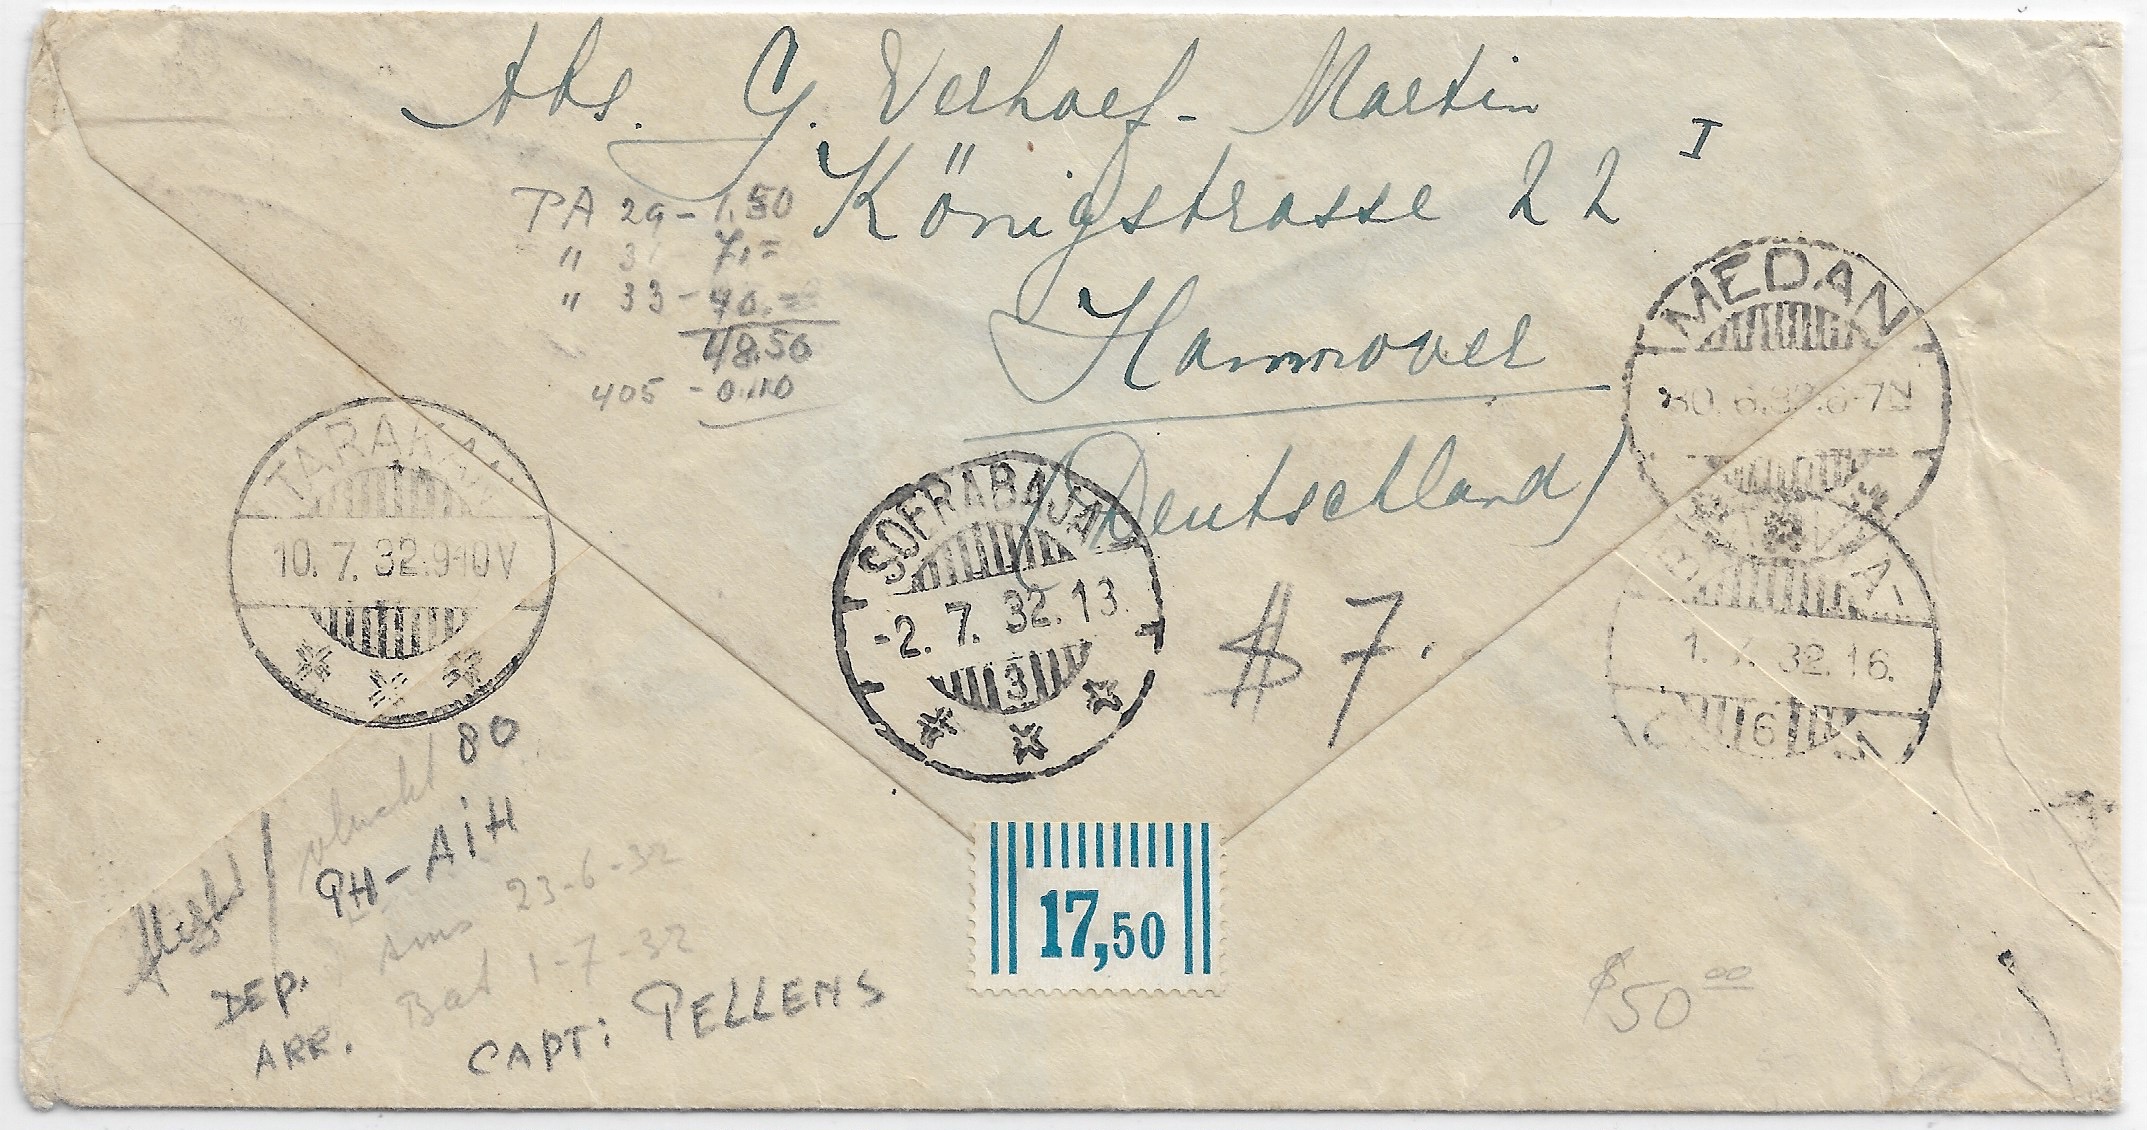 Abs. G. Verhoef-Martin
Königstrasse 22 I
Hannover
(Deutschland)
PA 29 - 1.50
" 31 7,=
" 33 - 40.=
48.50
405 -
MEDAN
30.6.32.6-7N
TARAKAN
10.7.32.9-10V
SOERABAJA
-2.7.32.13.
3
BATAVIA-
1.7.32.16.
6
$7.
80
flight / vlucht
PH-AIH
DEP. Ams 23-6-32
ARR. Bat 1-7-32
CAPT: PELLENS
17,50
$50 00